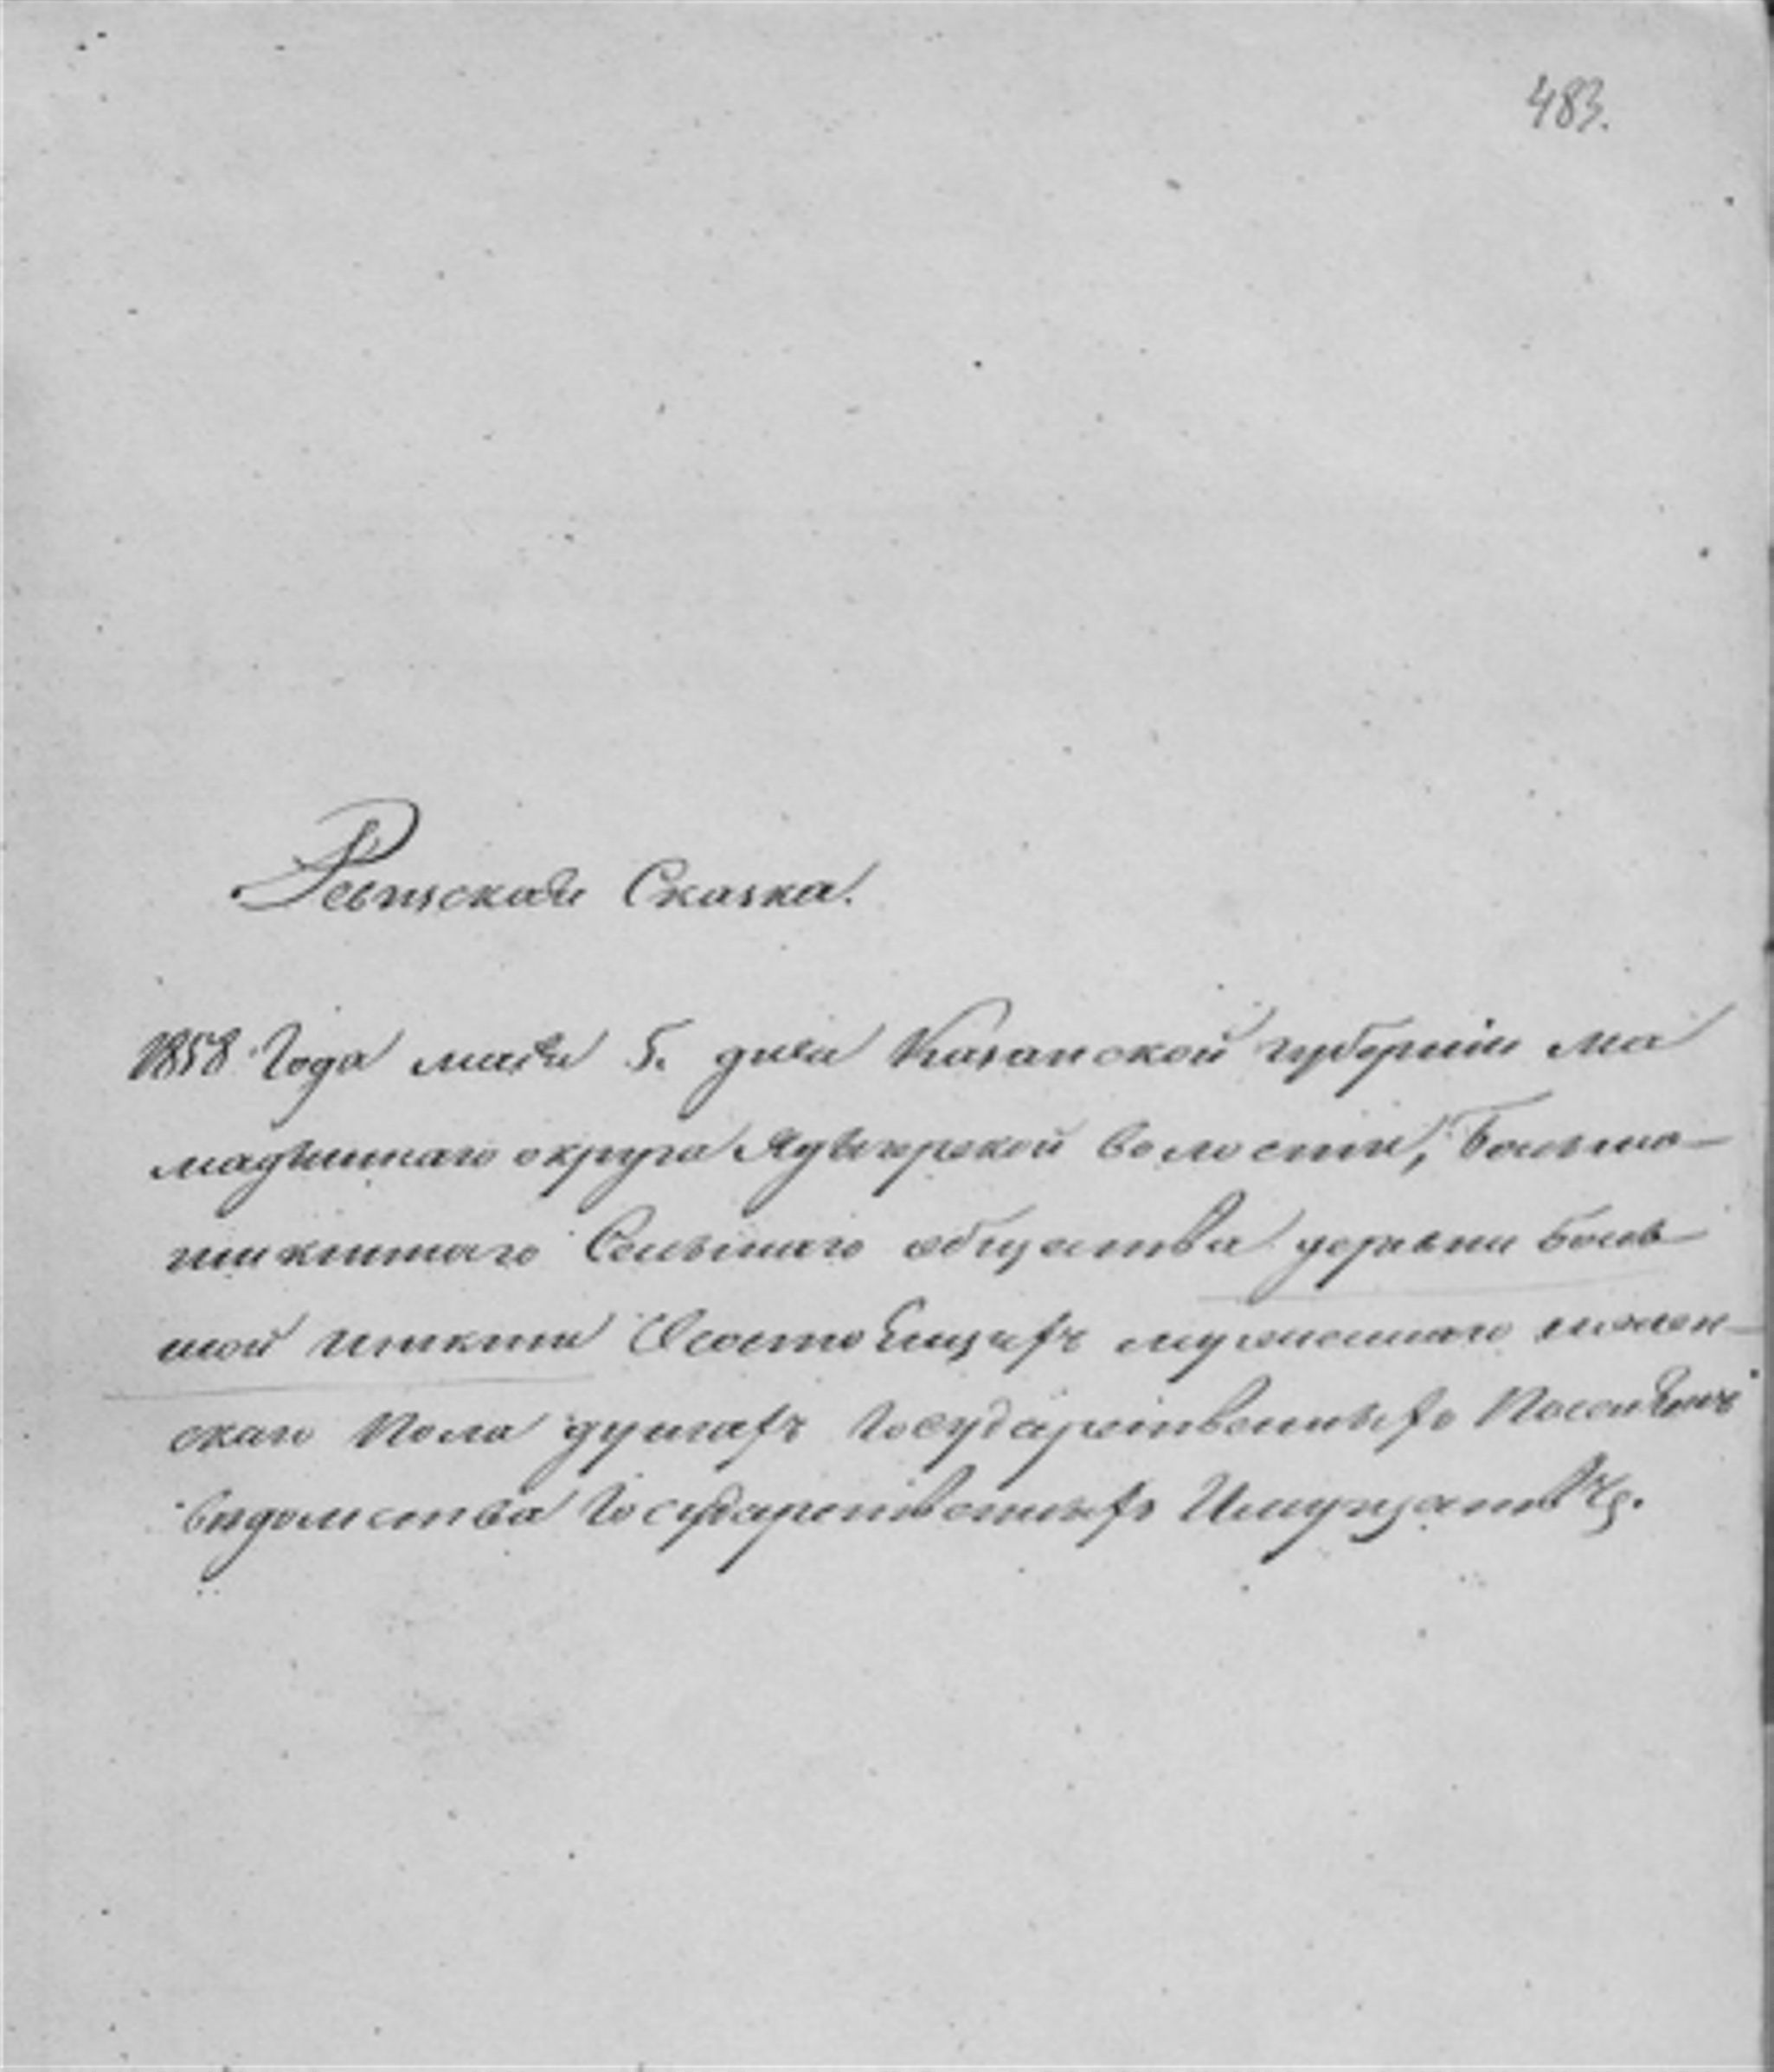 483.
Ревизская Сказка.
1858 Года мая 5. дня Казанской губернии Ма
мадышскаго округа Ядыгерской волости, Больше
шинскаго Сельскаго общества деревни Боль
шой О состоящихъ мужескаго и женс
скаго пола душахъ Государственныхъ Поселянъ
ведомства Государственныхъ Имуществъ.